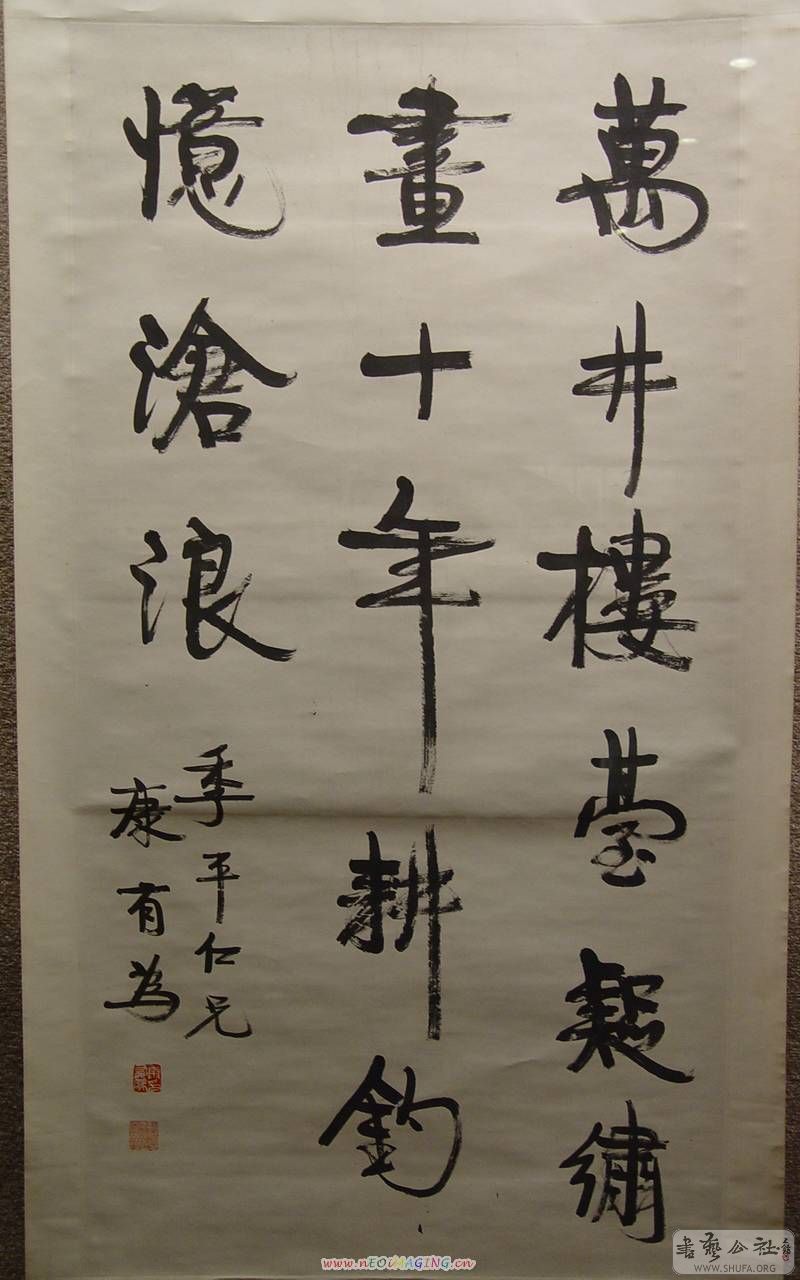 萬井樓臺疑繡
畫十年耕釣
憶滄浪
季平仁兄
康有為
書藝公社
WWW.SHUFA.ORG
www.nEOiMAGING.cn